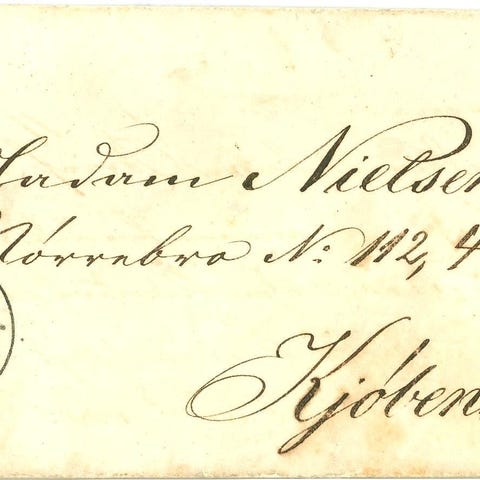 Madam Nielsen
Nørrebro No: 112, 4
Kjøben